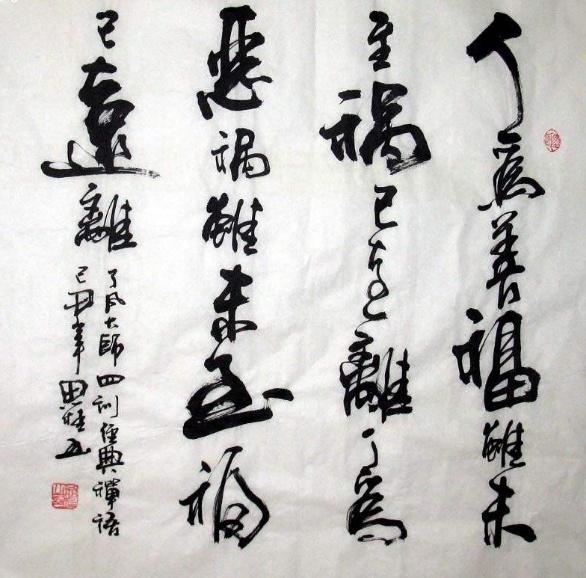 人為善福雖未
至禍已遠離人為
惡禍雖未至福
已遠離
了凡大師四训經典禪語
己丑年